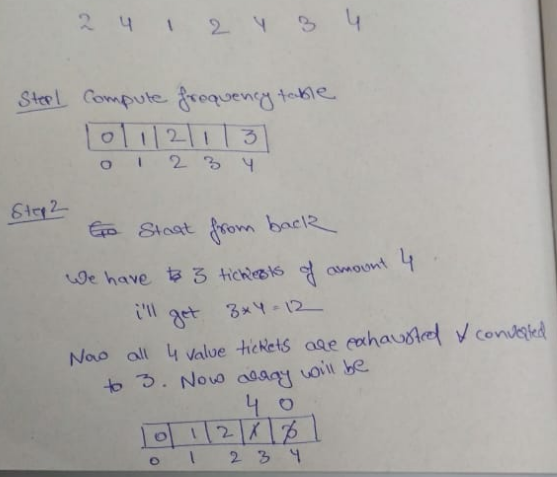 2 4 1 2 4 3 4
Step1 Compute frequency table
0 1 2 1 3
0 1 2 3 4
Step2
Start from back
We have 3 tickets of amount 4
i'll get 3x4=12
Now all 4 value tickets are exhausted & converted
to 3. Now array will be
4 0
0 1 2 1 3
0 1 2 3 4